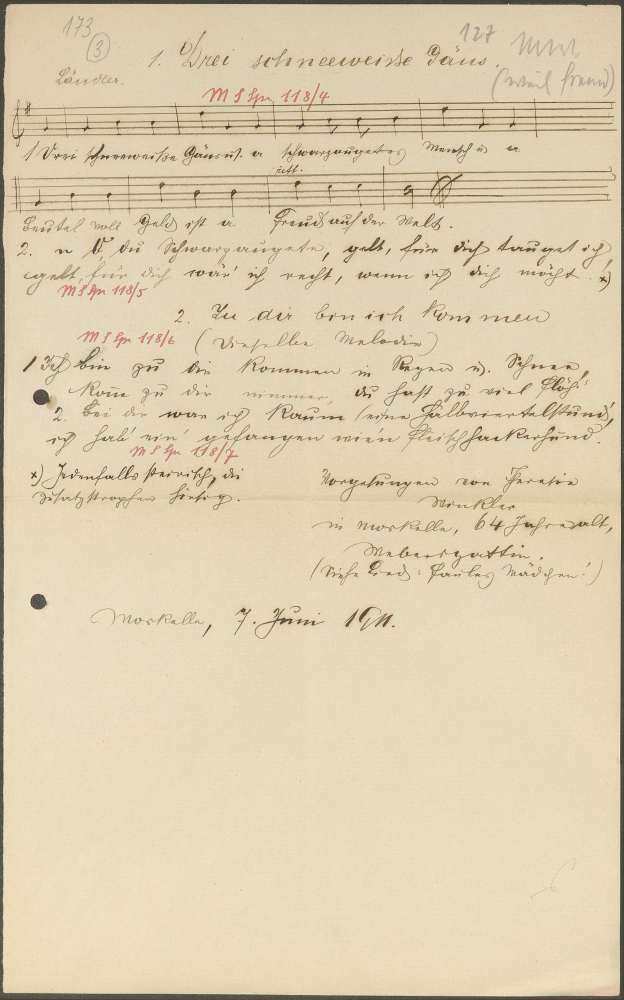 173
3
127
1. Drei schneeweiße Gäns.
Ländler.
M S Spr 118/4
1 Drei schneeweiße Gäns u. a schwarzaugetes Mensch u a
ritt.
Beutel voll Geld ist a Freud auf der Welt.
2. du Schwarzaugete, gelt, für dich tauget ich,
gelt, für dich wär' ich recht, wenn ich dich möcht. x)
M S Spr 118/5
2. Zu dir bin ich kommen
M S Spr 118/6 (Dieselbe Melodie)
1 Ich bin zu dir kommen in Regen u. Schnee,
komm zu dir nimmer, du hast zu viel Flöh'.
2. Bei dir war ich kaum eine Halbviertelstund',
ich hab' ein' gefangen wie'n Fleischhackerhund.
M S Spr 118/7
x) Jedenfalls steirisch, die
Zusatzstrophen hiesig.
Vorgesungen von Theresia
Winkler
in Moskelle, 64 Jahre alt,
Webersgattin.
(Siehe Lied: Faules Mädchen!)
Moskelle, 7. Juni 1911.